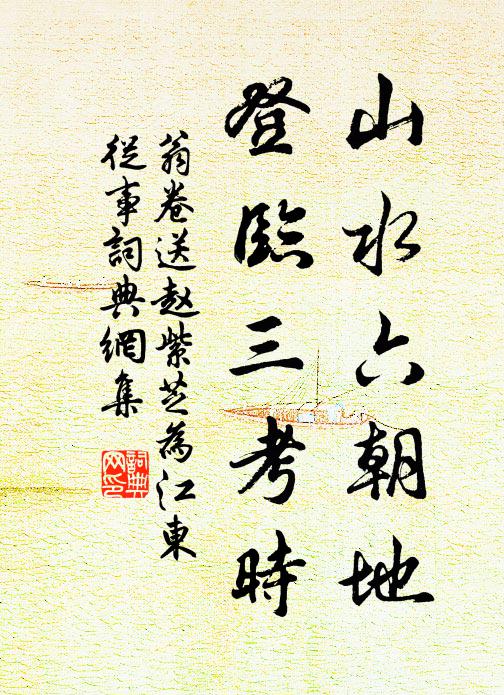 山水六朝地
登臨三考時
翁卷送赵紫芝為江東
從事詞典網集
詞典網印